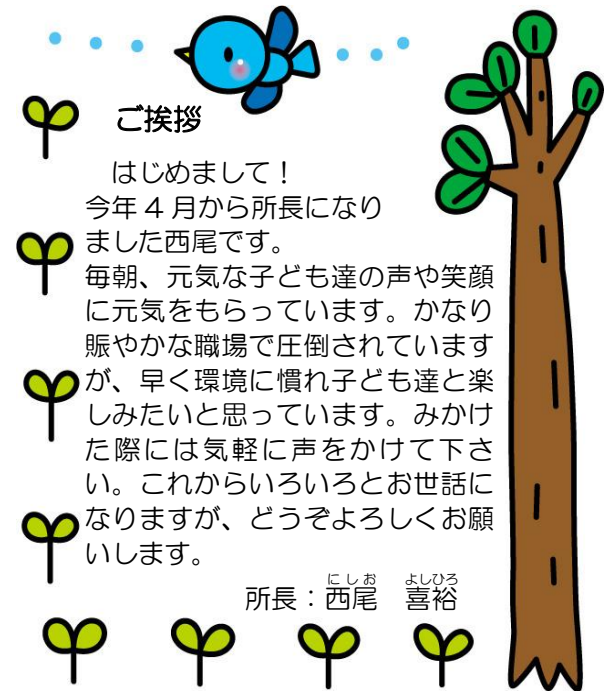 ご挨拶
はじめまして!
今年4月から所長になり
ました西尾です。
毎朝、元気な子ども達の声や笑顔
に元気をもらっています。かなり
賑やかな職場で圧倒されています
が、早く環境に慣れ子ども達と楽
しみたいと思っています。みかけ
た際には気軽に声をかけて下さ
い。これからいろいろとお世話に
なりますが、どうぞよろしくお願
いします。
にしお よしひろ
所長:西尾 喜裕